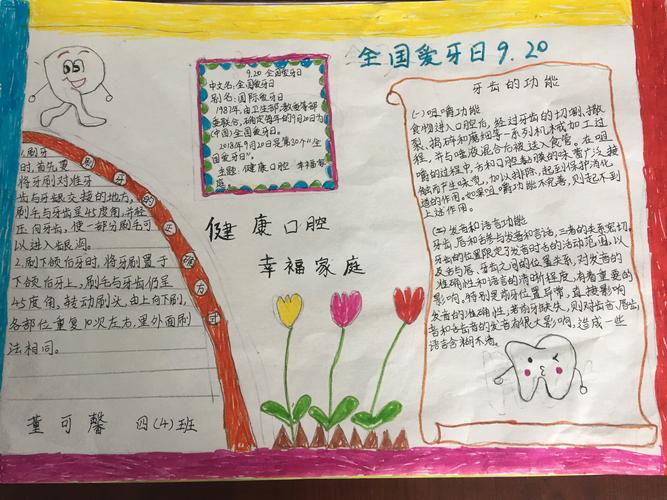 全国爱牙日9.20
9.20 全国爱牙日
中文名:全国爱牙日
别名:国际爱牙日
1989年,由卫生部,教委等部
委联合,确定每年的9月20日为
(中国)全国爱牙日。
2018年9月20日是第30个“全
国爱牙日”。
主题:健康口腔 幸福家
庭。
健康口腔
幸福家庭
刷牙的正确方式
1.刷牙
时,首先要
将牙刷对准牙
齿与牙龈交接的地方,
刷毛与牙齿呈45度角,并轻
压向牙齿,使一部分刷毛可
以进入牙龈沟。
2.刷下颌后牙时,将牙刷置于
下颌后牙上,刷毛与牙齿仍呈
45度角,转动刷头,由上向下刷,
各部位重复10次左右,里外面刷
法相同。
董可馨 四(4)班
牙齿的功能
(一)咀嚼功能
食物进入口腔后,经过牙齿的切割、撕
裂、捣碎和磨细等一系列机械加工过
程,并与唾液混合后被送入食管。在咀
嚼的过程中,方和口腔黏膜的味蕾广泛接
触而产生味觉,加以排除,起到保护消化
道的作用。如果咀嚼功能不完善,则起不到
上述作用。
(二)发音和语言功能
牙齿、唇和舌参与发音和言语,三者的关系密切。
牙齿的位置限定了发音时舌的活动范围,以
及舌与唇、牙齿之间的位置关系,对发音的
准确性和语言的清晰程度,有着重要的
影响,特别是前牙位置异常,直接影响
发音的准确性,若前牙缺失,则对齿音、唇齿
音和舌齿音的发音有很大影响,造成一些
语言含糊不清。